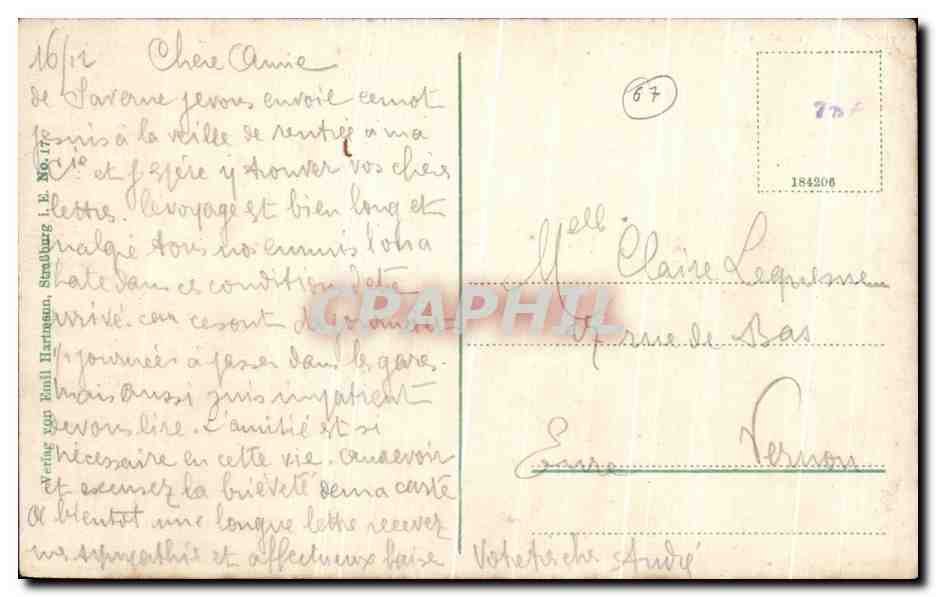 16/12 Chère Amie
de Saverne je vous envoie ce mot
je suis à la veille de rentrer à ma
Cie et j'espère y trouver vos chères
lettres. le voyage est bien long et
malgré tous nos ennuis l'on a
hate dans ces conditions d'être
arrivé. car ce sont de
journées à passer dans les gares.
mais aussi suis impatient
de vous lire. L'amitié est si
nécessaire en cette vie. au revoir
et excusez la brièveté de ma carte
A bientot une longue lettre recevez
mes sympathie et affectueux baise
Votre André
Verlag von Emil Hartmann, Straßburg i. E. No. 17
67
184206
Melle Claire Lequesne
rue de Bas
Vernon
Eure
CPAPHIL